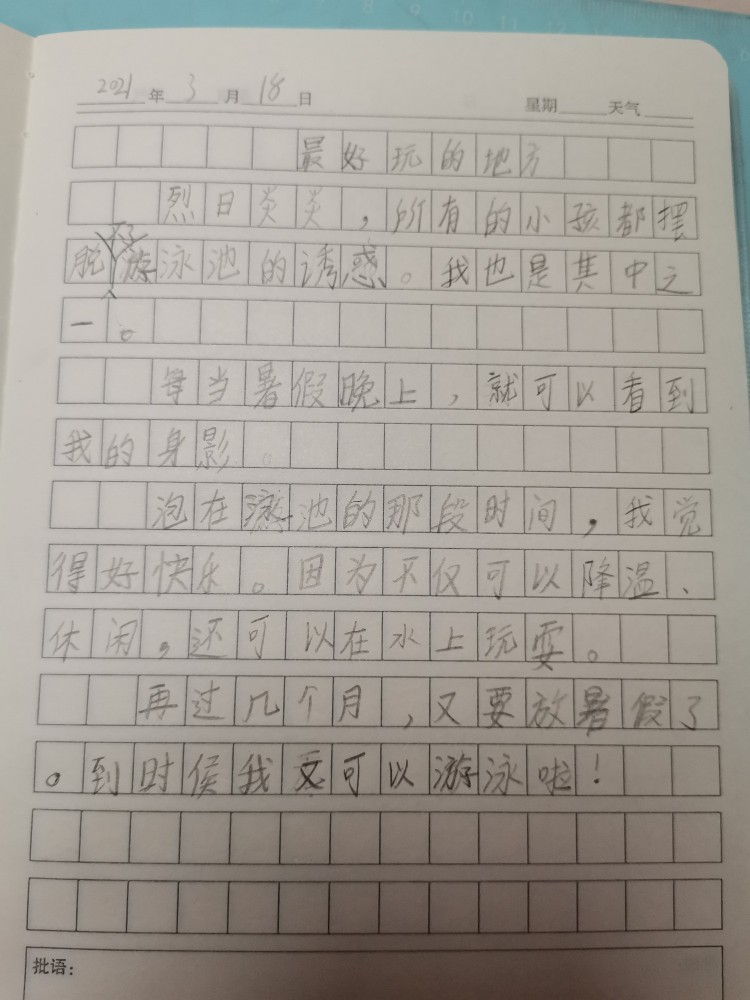 2021年3月18日 星期 天气
最好玩的地方
烈日炎炎，所有的小孩都摆
脱不了游泳池的诱惑。我也是其中之
一。
每当暑假晚上，就可以看到
我的身影。
泡在游池的那段时间，我觉
得好快乐。因为不仅可以降温、
休闲，还可以在水上玩耍。
再过几个月，又要放暑假了
。到时侯我又可以游泳啦！
批语：